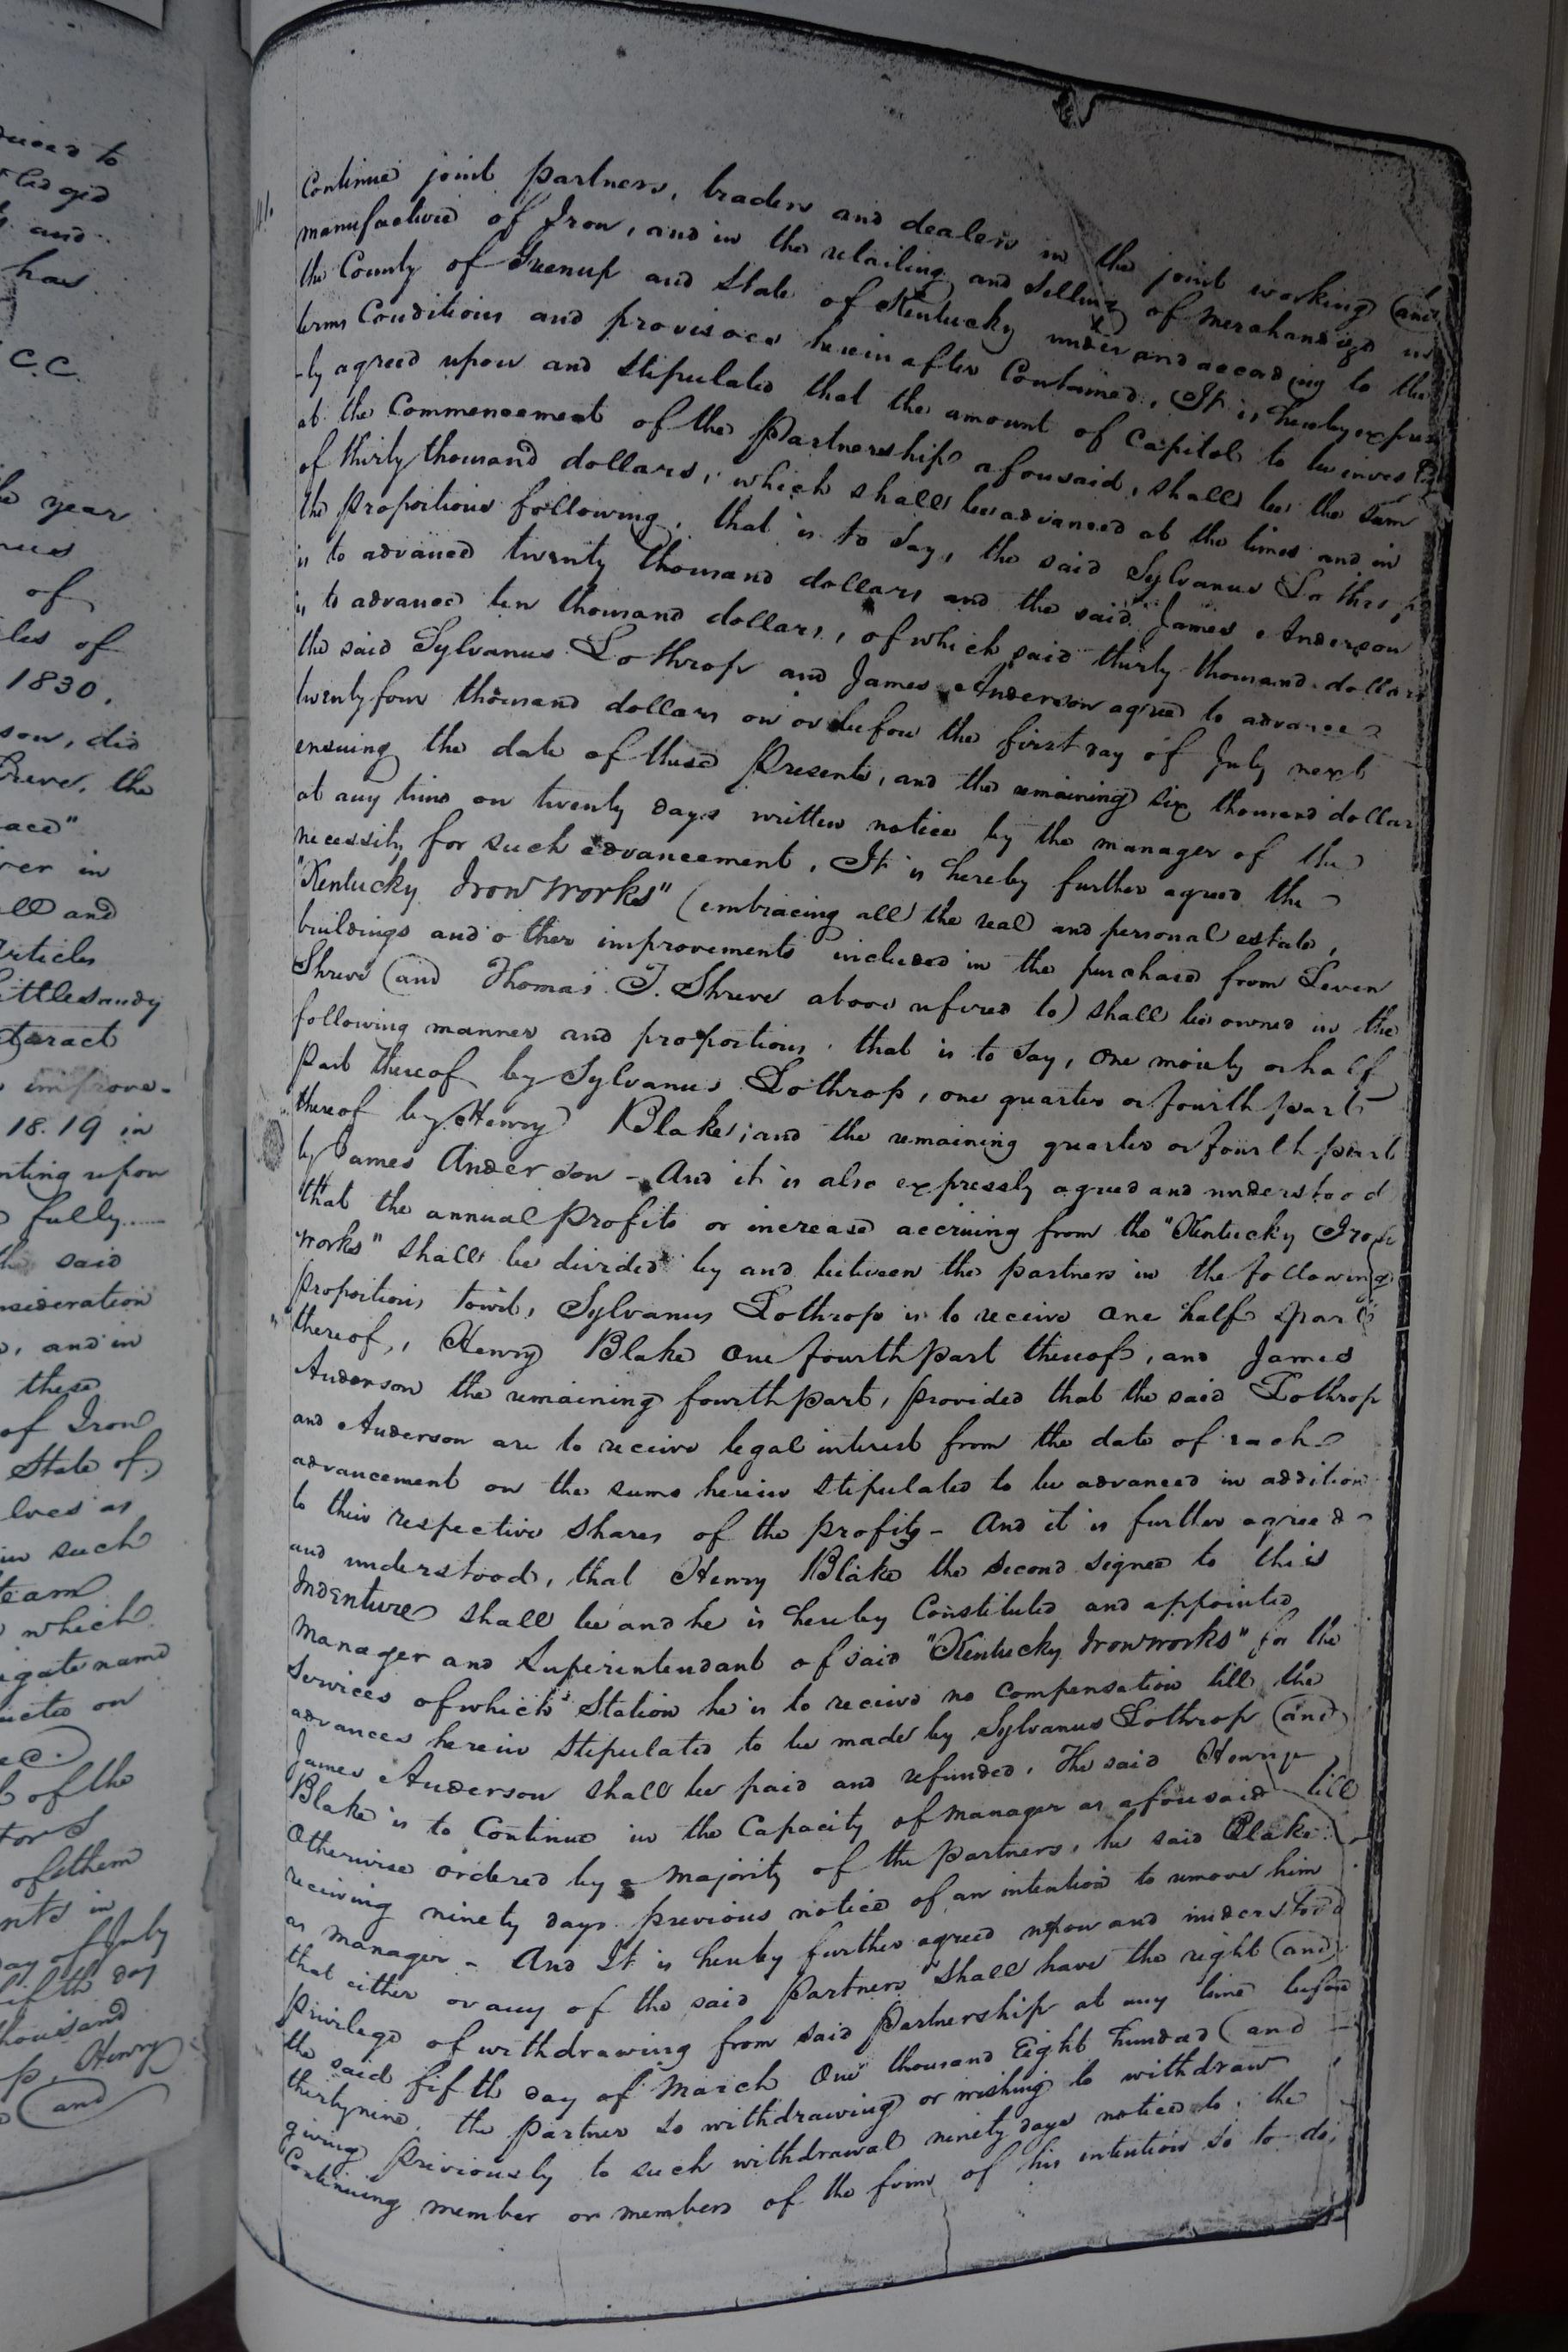 duced to
ledged
and
has
C.C.
year
of
les of
1830.
son, did
Shreve, the
ace"
ver in
ell and
Articles
Little Sandy
tract
improve-
18.19 in
nting upon
fully
the said
nsideration
, and in
these
of Iron
State of
lves as
in such
team
which
igate name
ucted on
of the
tors
of them
nts in
day of July
fifth day
thousand
p, Henry
(and
Continue joint partners, traders and dealers in the joint working (and
manufactured of Iron, and in the retailing and selling of merchandize in
the County of Greenup and State of Kentucky under and according to the
terms Conditions and provisoes herein after Contained. It is hereby expres
-ly agreed upon and stipulated that the amount of Capitol to be invested
at the Commencement of the Partnership aforesaid, shall be the sum
of thirty thousand dollars, which shall be advanced at the times and in
the proportions following, that is to say, the said Sylvanus Lothrop
is to advance twenty thousand dollars and the said James Anderson
is to advance ten thousand dollars, of which said thirty thousand dollars
the said Sylvanus Lothrop and James Anderson agreed to advance
twenty four thousand dollars on or before the first day of July next
ensuing the date of these Presents, and the remaining six thousand dollars
at any time on twenty days written notice by the manager of the
necessity for such advancement. It is hereby further agreed the
"Kentucky Iron Works" (embracing all the real and personal estate,
buildings and other improvements included in the purchase from Leven
Shreve (and Thomas T. Shreve above refered to) shall be owned in the
following manner and proportions. that is to say, One moiety or half
part thereof by Sylvanus Lothrop, one quarter or fourth part
thereof by Henry Blake; and the remaining quarter or fourth part
by James Anderson - And it is also expressly agreed and understood
that the annual profits or increase accruing from the "Kentucky Iron
Works" shall be divided by and between the partners in the following
proportions towit, Sylvanus Lothrop is to receive one half part
thereof,, Henry Blake One fourth part thereof, and James
Anderson the remaining fourth part, provided that the said Lothrop
and Anderson are to receive legal interest from the date of each
advancement on the sums herein stipulated to be advanced in addition
to their respective shares of the profits - And it is further agreed
and understood, that Henry Blake the second signed to this
Indenture shall be and he is hereby Constituted and appointed
Manager and Superintendant of said "Kentucky Ironworks" for the
Services of which Station he is to receive no compensation till the
advances herein stipulated to be made by Sylvanus Lothrop (and
James Anderson shall be paid and refunded. The said Henry
Blake is to Continue in the Capacity of manager as aforesaid till
Otherwise ordered by a majority of the partners, he said Blake
receiving ninety days previous notice of an intention to remove him
as manager - And It is hereby further agreed upon and understood
that either or any of the said partners shall have the right (and
privilege of withdrawing from said partnership at any time before
the said fifth day of March One thousand Eight hundred (and
thirtynine, the partner so withdrawing or wishing to withdraw
giving previously to such withdrawal ninety days notice to the
Continuing member or members of the firm of his intention so to do,